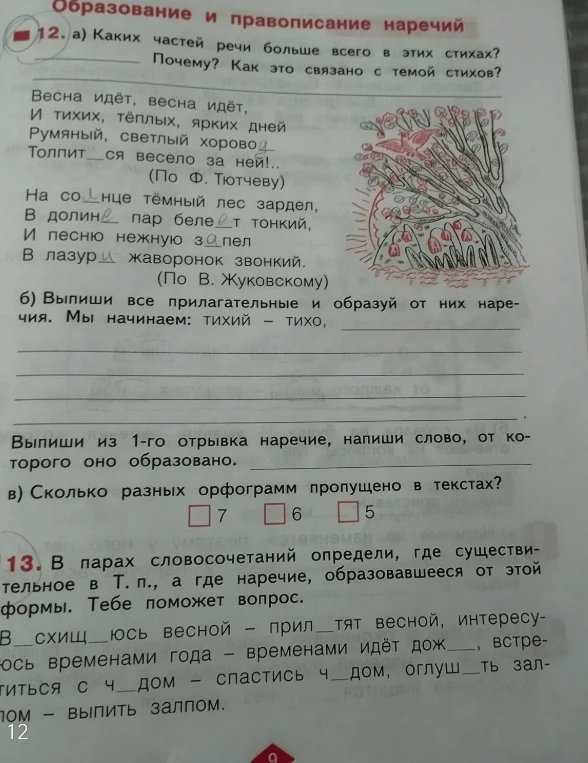 Образование и правописание наречий
12. а) Каких частей речи больше всего в этих стихах?
__________ Почему? Как это связано с темой стихов?
Весна идёт, весна идёт,
И тихих, тёплых, ярких дней
Румяный, светлый хоровод
Толпит__ся весело за ней!..
(По Ф. Тютчеву)
На солнце тёмный лес зардел,
В долине пар белеет тонкий,
И песню нежную запел
В лазури жаворонок звонкий.
(По В. Жуковскому)
б) Выпиши все прилагательные и образуй от них наре-
чия. Мы начинаем: тихий – тихо, __________
Выпиши из 1-го отрывка наречие, напиши слово, от ко-
торого оно образовано. __________
в) Сколько разных орфограмм пропущено в текстах?
7 6 5
13. В парах словосочетаний определи, где существи-
тельное в Т. п., а где наречие, образовавшееся от этой
формы. Тебе поможет вопрос.
В__схищ__юсь весной – прил__тят весной, интересу-
юсь временами года – временами идёт дож___, встре-
титься с ч__дом – спастись ч__дом, оглуш__ть зал-
пом – выпить залпом.
12
9